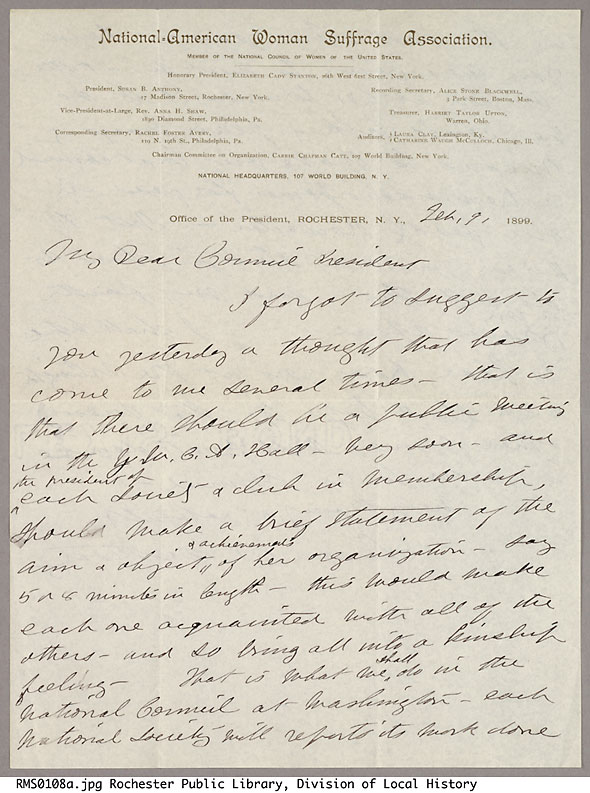 National-American Woman Suffrage Association.
MEMBER OF THE NATIONAL COUNCIL OF WOMEN OF THE UNITED STATES.
Honorary President, ELIZABETH CADY STANTON, 26th West 61st Street, New York.
President, SUSAN B. ANTHONY,
17 Madison Street, Rochester, New York.
Recording Secretary, ALICE STONE BLACKWELL,
3 Park Street, Boston, Mass.
Vice-President-at-Large, REV. ANNA H. SHAW,
1830 Diamond Street, Philadelphia, Pa.
Treasurer, HARRIET TAYLOR UPTON,
Warren, Ohio.
Corresponding Secretary, RACHEL FOSTER AVERY,
119 N. 19th St., Philadelphia, Pa.
Auditors, { LAURA CLAY, Lexington, Ky.
{ CATHARINE WAUGH McCULLOCH, Chicago, Ill.
Chairman Committee on Organization, CARRIE CHAPMAN CATT, 107 World Building, New York.
NATIONAL HEADQUARTERS, 107 WORLD BUILDING, N. Y.
Office of the President, ROCHESTER, N. Y., Feb, 9, 1899.
My Dear Council President
I forgot to suggest to
you yesterday a thought that has
come to me several times - that is
that there should be a public meeting
in the Y. M. C. A. Hall - very soon - and
the president of
each Society & club in membership,
should make a brief statement of the
& achievements
aim & object, of her organization - say
5 or 8 minutes in length - this would make
each one acquainted with all of the
others - and so bring all into a kinship
feeling - That is what we shall do in the
National Council at Washington - each
National Society will report its work done
RMS0108a.jpg Rochester Public Library, Division of Local History